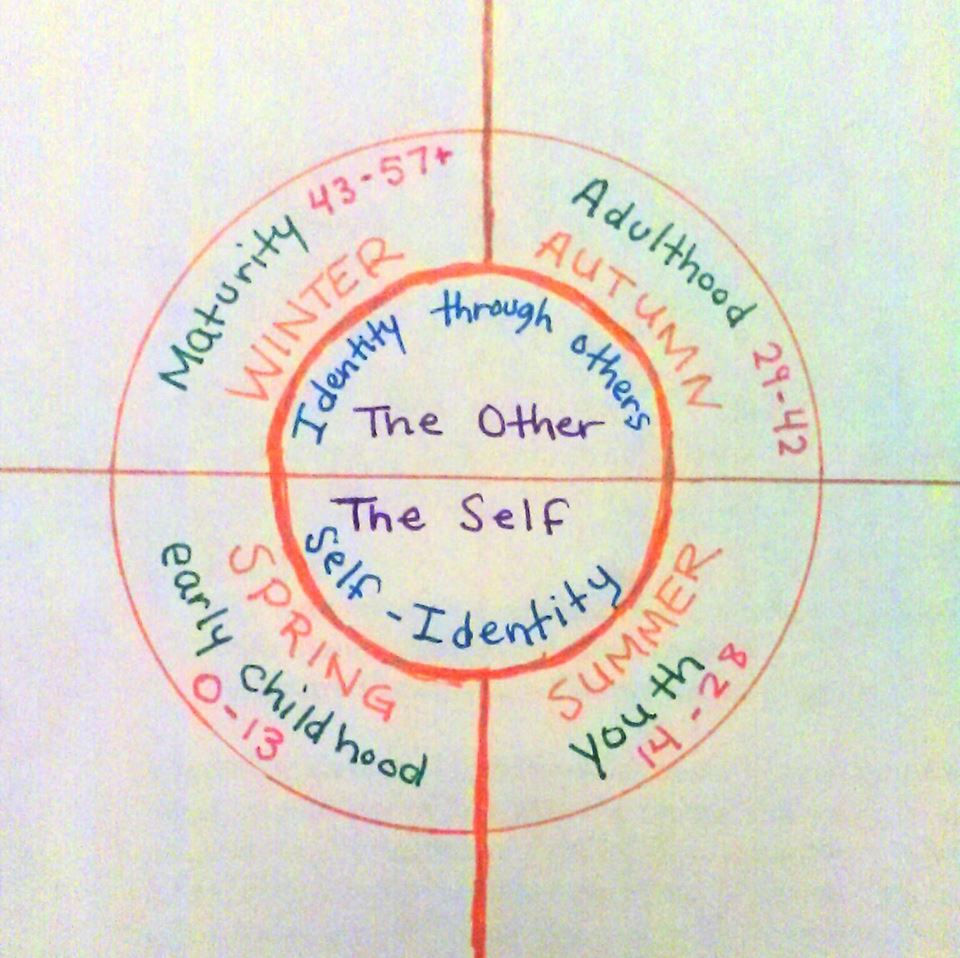 Maturity 43-57+
WINTER
Adulthood 29-42
AUTUMN
Identity through others
The Other
The Self
Self-Identity
SPRING
early childhood
0-13
SUMMER
youth
14-28